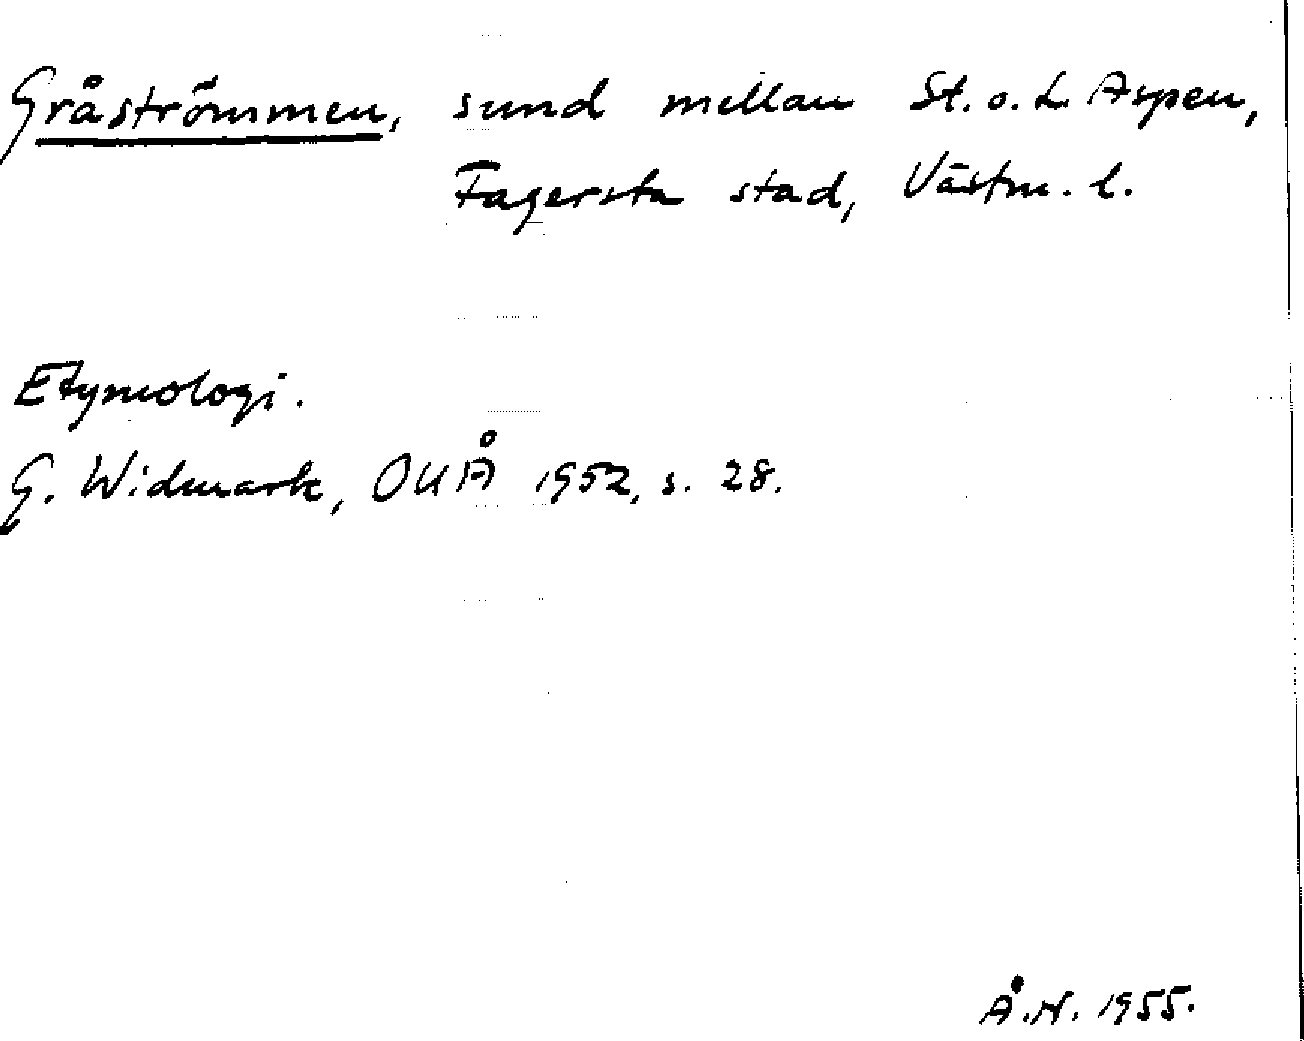 Gråströmmen, sund mellan St. o. L. Aspen,
Fagersta stad, Västm. l.
Etymologi.
G. Widmark, OUÅ 1952, s. 28.
Å.N. 1955.